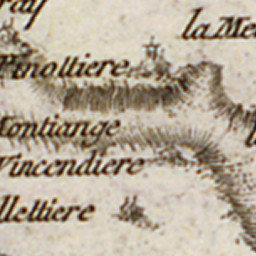 la Me
Pinoltiere
Montiange
Vincendiere
lleltiere